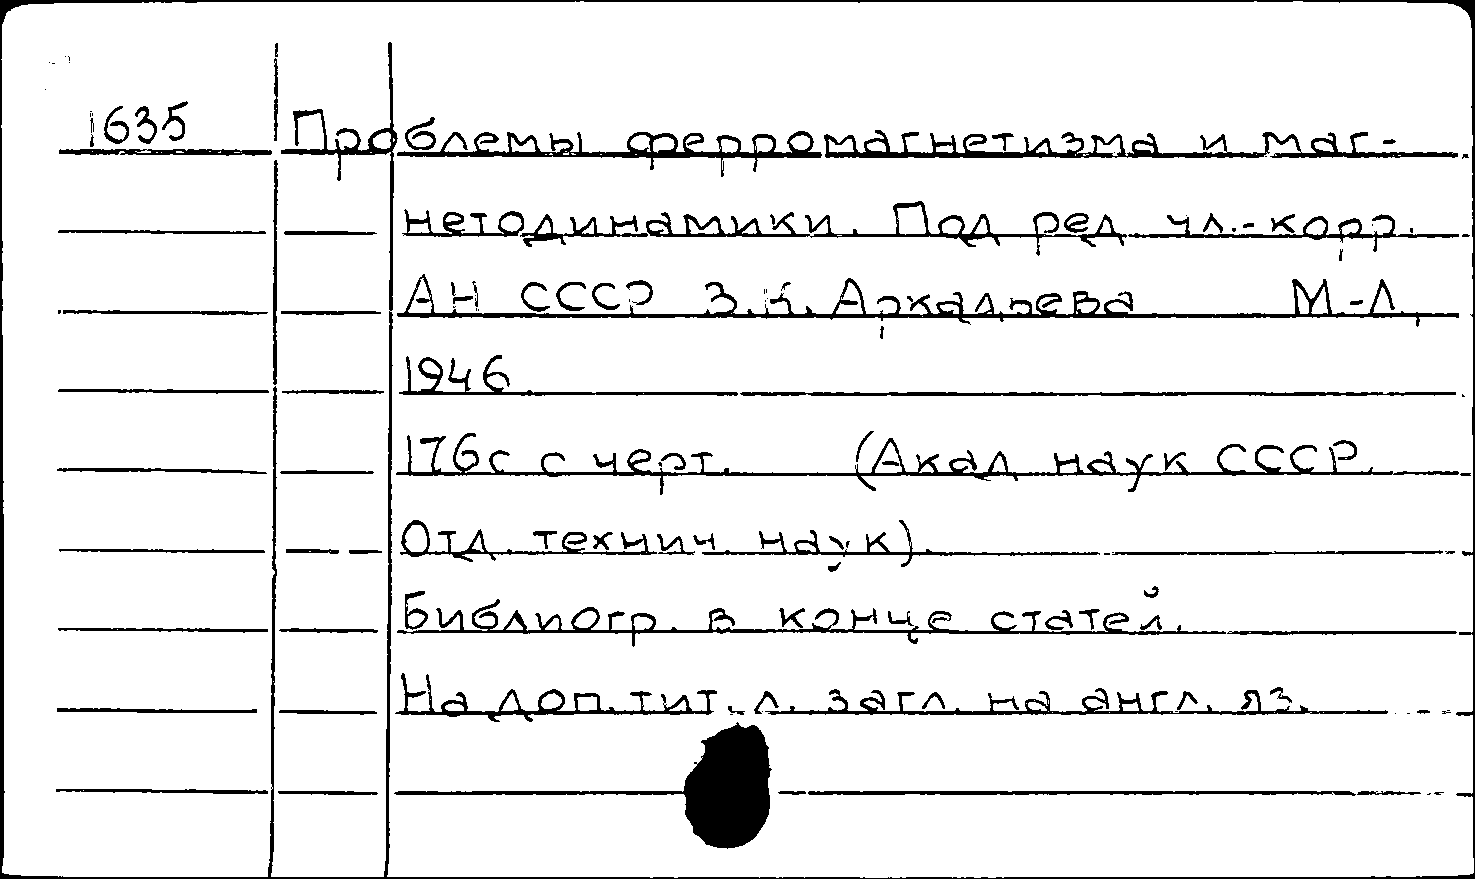 1635 Проблемы ферромагнетизма и маг-
нетодинамики. Под ред. чл.-корр.
АН СССР В.К. Аркадьева М.-Л.,
1946.
176с с черт. (Акад наук СССР.
Отд. технич. наук).
Библиогр. в конце статей.
На доп. тит. л. загл. на англ. яз.